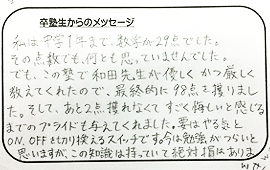 卒塾生からのメッセージ
私は中学1年まで、数学が29点でした。
その点数でも、何とも思っていませんでした。
でも、この塾で和田先生が優しくかつ厳しく
教えてくれたので、最終的に98点を獲りまし
た。そして、あと2点獲れなくてすごく悔しいと感じる
までのプライドも与えてくれました。要はやる気と
ON,OFFを切り換えるスイッチです。今は勉強がつらいと
思いますが、この知識は持っていて絶対損はありま